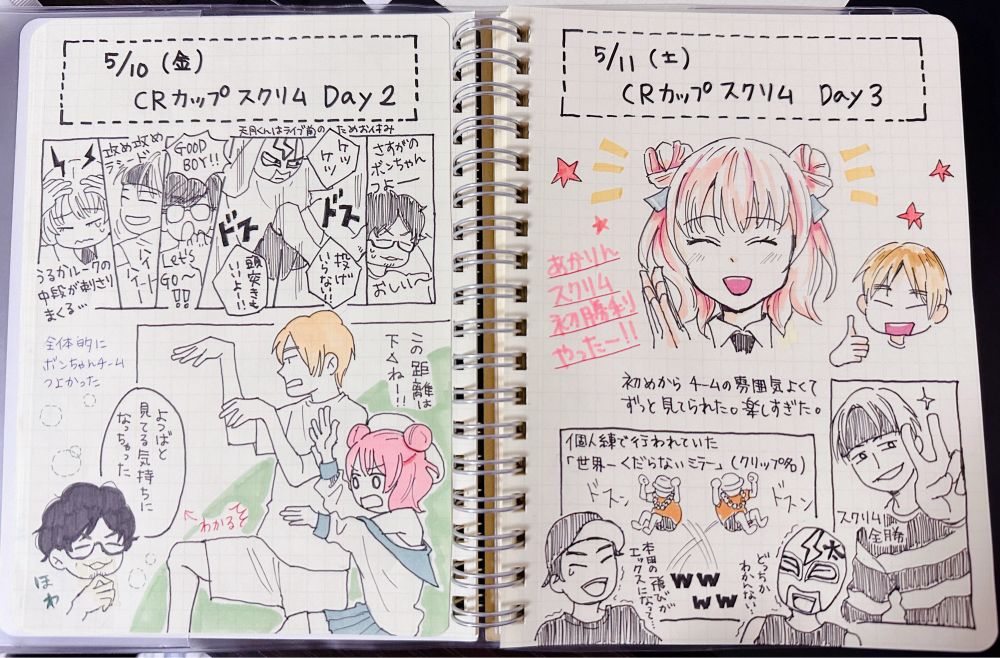 5/10（金）
CRカップ スクリム Day2
天月くんはライブ前のためお休み
うるかルークの
中段が刺さり
まくる
攻め攻め
ラシード
GOOD
BOY!!
Let's
Go〜
!!
ケツ
ケツ
ドス
ドス
頭突きも
いいよー!!
投げ
いらない!!
さすがの
ボンちゃん
つよー
おしい〜
全体的に
ボンちゃんチーム
つよかった
この距離は
下△ねー!!
よつばと
見てる気持ちに
なっちゃった
←わかるぞ
ほわ
5/11（土）
CRカップ スクリム Day3
あかりん
スクリム
初勝利
やったー!!
初めから チームの雰囲気よくて
ずっと見てられた。楽しすぎた。
個人練で行われていた
「世界一くだらないミラー」（クリップ名）
ドスン
ドスン
本田の飛びが
エックスになって…
ww
ww
どっちか
わかんない…
スクリム
全勝